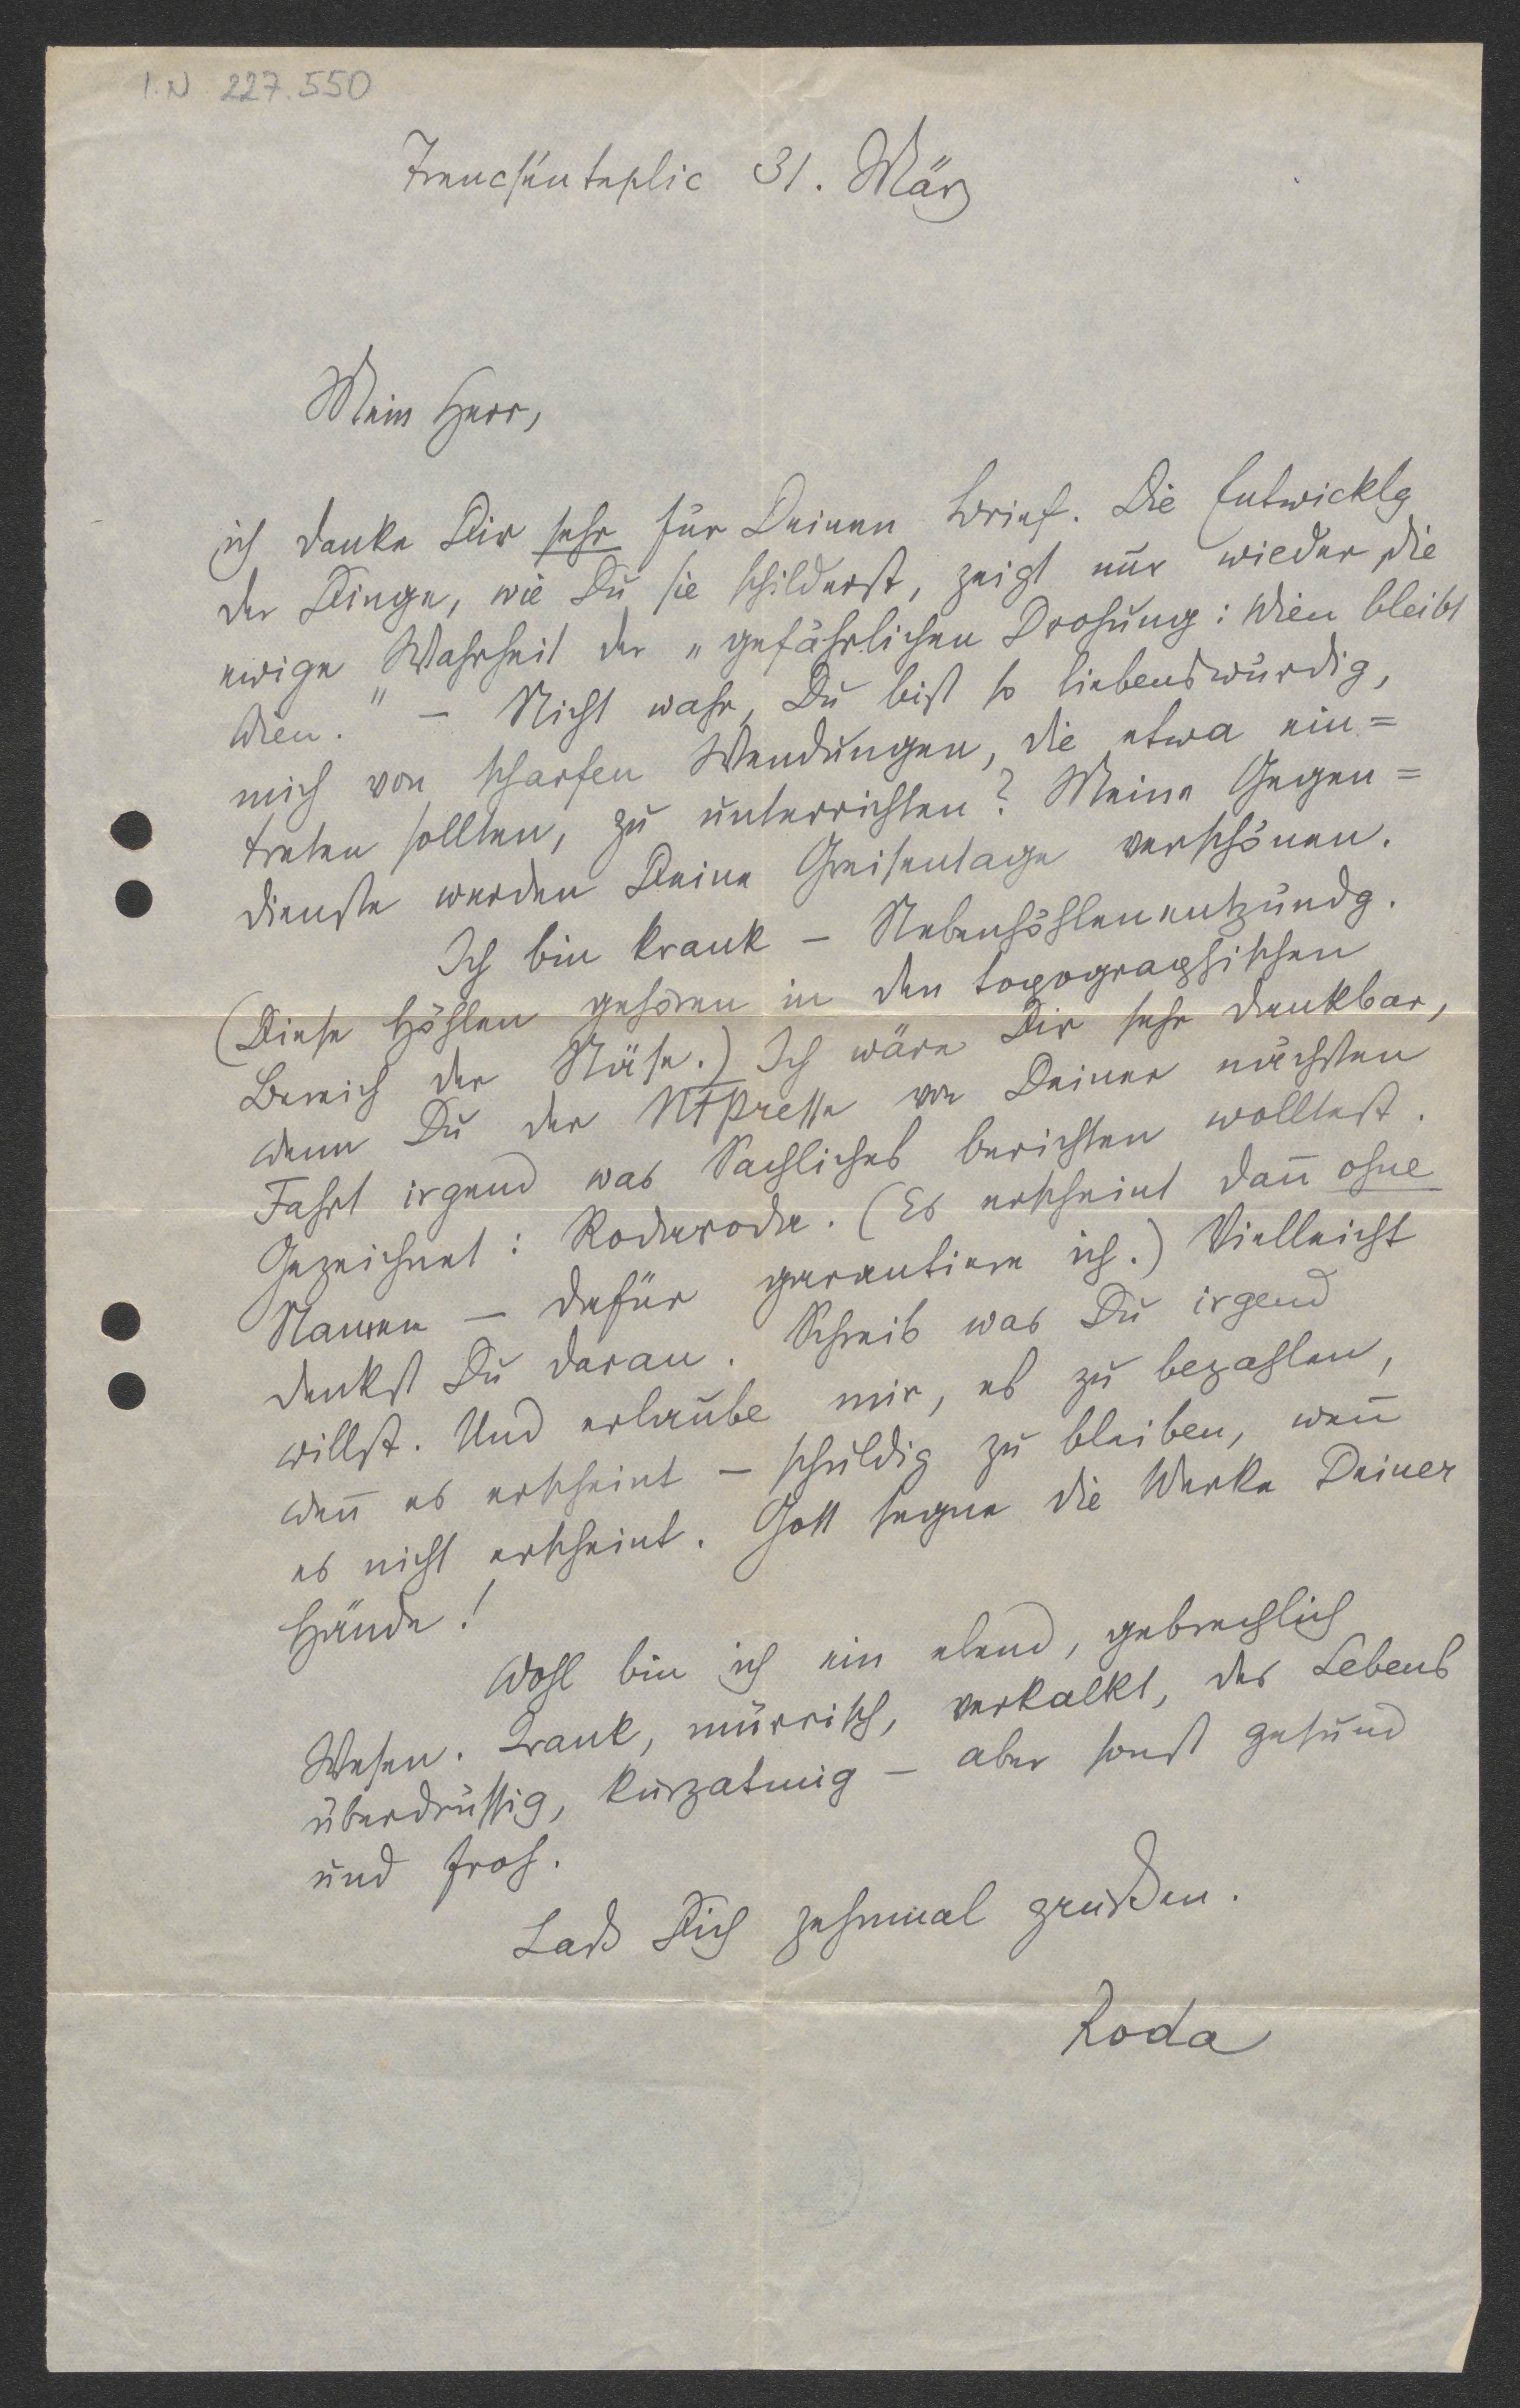 I.N 227.550
Trencsénteplic 31. März
Mein Herr,
ich danke Dir sehr für Deinen Brief. Die Entwicklg
der Dinge, wie Du sie schilderst, zeigt nur wieder die
ewige Wahrheit der „gefährlichen Drohung: Wien bleibt
Wien." – Nicht wahr, Du bist so liebenswürdig,
mich von scharfen Wendungen, die etwa ein=
treten sollten, zu unterrichten? Meine Gegen=
dienste werden Deine Greisentage verschönen.
Ich bin krank – Nebenhöhlenentzündg.
(Diese Höhlen gehören in den topographischen
Bereich der Näse.) Ich wäre Dir sehr dankbar,
wenn Du der NFPresse von Deiner nächsten
Fahrt irgend was Sachliches berichten wolltest.
Gezeichnet: Rodaroda. (Es erscheint dan̄ ohne
Namen – dafür garantiere ich.) Vielleicht
denkst Du daran. Schreib was Du irgend
willst. Und erlaube mir, es zu bezahlen,
wen̄ es erscheint – schuldig zu bleiben, wen̄
es nicht erscheint. Gott segne die Werke Deiner
Hände!
Wohl bin ich ein elend, gebrechlich
Wesen. Krank, mürrisch, verkalkt, des Lebens
überdrüssig, kurzatmig – aber sonst gesund
und froh.
Laß Dich zehnmal grüßen.
Roda